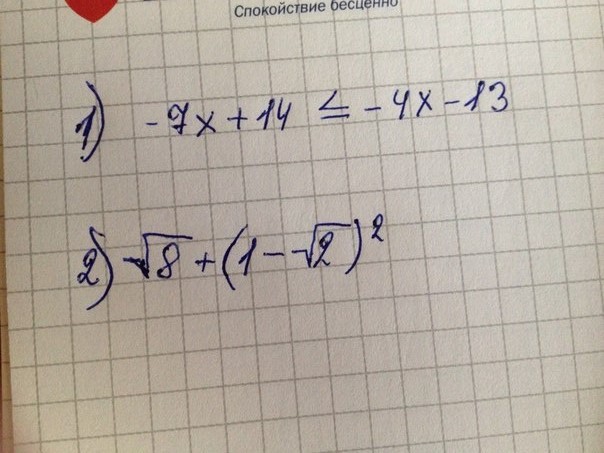 Спокойствие бесценно
1) -7x + 14 ≤ -4x - 13
2) √8 + (1 - √2)²